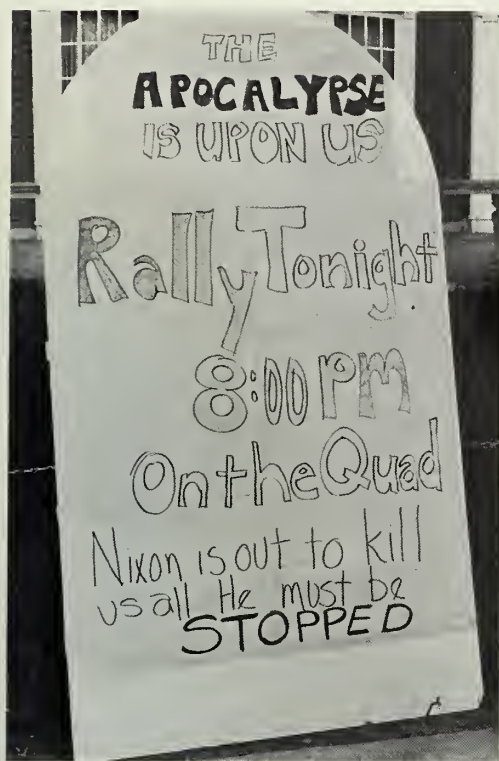 THE
APOCALYPSE
IS UPON US
Rally Tonight
8:00 PM
On the Quad
Nixon is out to kill
us all He must be
STOPPED